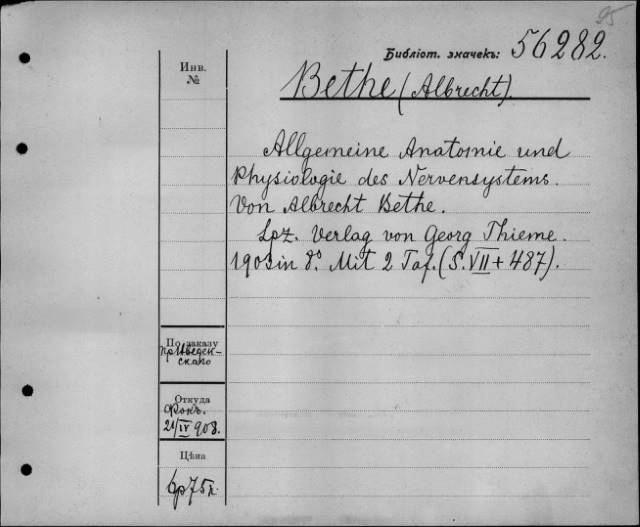 95
Библіот. значекъ: 56282.
Инв.
№
Bethe (Albrecht).
Allgemeine Anatomie und
Physiologie des Nervensystems.
Von Albrecht Bethe.
Lpz. Verlag von Georg Thieme.
1903 in 8.° Mit 2 Taf. (S. VII + 487).
По заказу
Откуда
Фокъ.
21/IV 908.
Цѣна
6р75к.